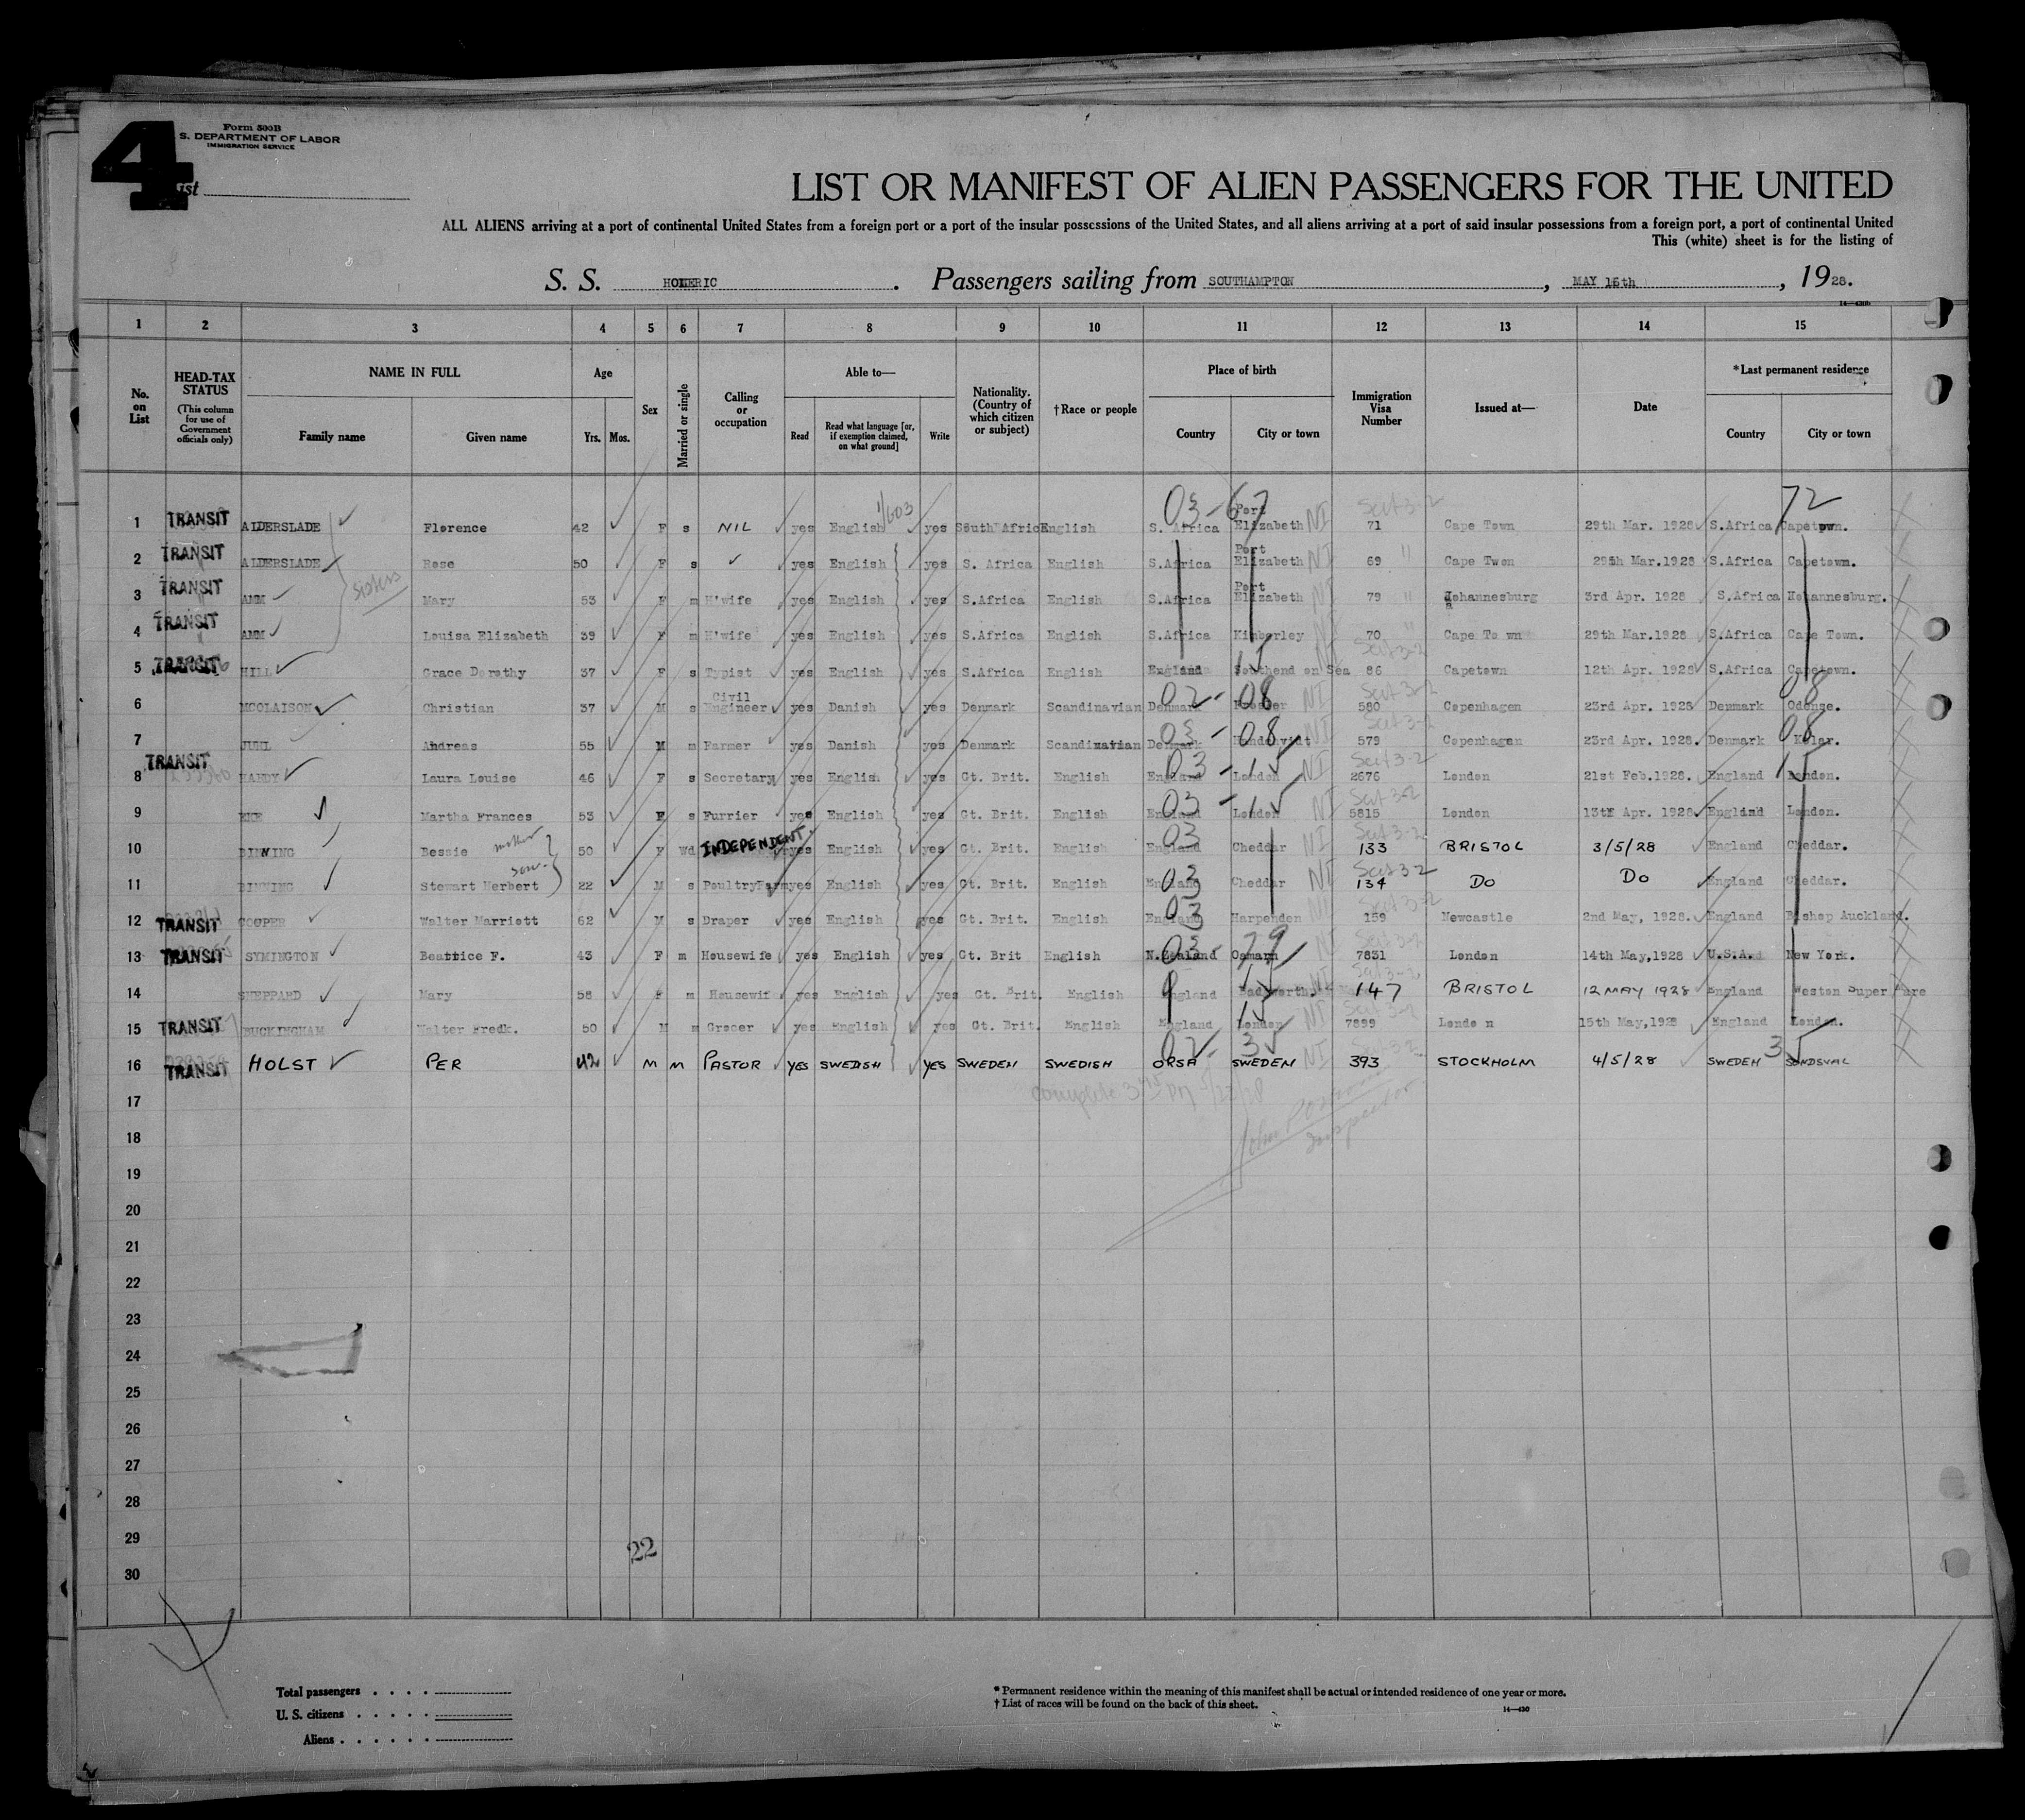 4
Form 500B
S. DEPARTMENT OF LABOR
IMMIGRATION SERVICE
ist
LIST OR MANIFEST OF ALIEN PASSENGERS FOR THE UNITED
ALL ALIENS arriving at a port of continental United States from a foreign port or a port of the insular possessions of the United States, and all aliens arriving at a port of said insular possessions from a foreign port, a port of continental United
This (white) sheet is for the listing of
S. S. HOMERIC. Passengers sailing from SOUTHAMPTON, MAY 16th, 1928.
1 2 3 4 5 6 7 8 9 10 11 12 13 14 15
No. on List
HEAD-TAX STATUS (This column for use of Government officials only)
NAME IN FULL Family name Given name
Age Yrs. Mos.
Sex
Married or single
Calling or occupation
Able to— Read Read what language [or, if exemption claimed, on what ground] Write
Nationality. (Country of which citizen or subject)
†Race or people
Place of birth Country City or town
Immigration Visa Number
Issued at—
Date
*Last permanent residence Country City or town
03-67 72
1 TRANSIT ALDERSLADE Florence 42 F s NIL yes English yes South Africa English S. Africa Port Elizabeth NI 71 Cape Town 29th Mar. 1928 S.Africa Capetown.
2 TRANSIT ALDERSLADE Rose 50 F s yes English yes S. Africa English S.Africa Port Elizabeth NI 69 Cape Twon 29th Mar.1928 S.Africa Capetown.
sisters
3 TRANSIT AMM Mary 53 F m H'wife yes English yes S.Africa English S.Africa Port Elizabeth NI 79 Johannesburg 3rd Apr. 1928 S.Africa Hohannesburg.
4 TRANSIT AMM Louisa Elizabeth 39 F m H'wife yes English yes S.Africa English S.Africa Kimberley 70 Cape Town 29th Mar.1928 S.Africa Cape Town.
5 TRANSIT HILL Grace Dorothy 37 F s Typist yes English yes S.Africa English England Southend on Sea 86 Capetown 12th Apr. 1928 S.Africa Capetown.
6 MCOLAISON Christian 37 M s Civil Engineer yes Danish yes Denmark Scandinavian Denmark 02-08 NI 580 Copenhagen 23rd Apr. 1928 Denmark Odense. 08
7 JUHL Andreas 55 M m Farmer yes Danish yes Denmark Scandinavian Denmark 08 NI 579 Copenhagen 23rd Apr. 1928. Denmark 08
8 TRANSIT HANDY Laura Louise 46 F s Secretary yes English yes Gt. Brit. English England London NI 2676 London 21st Feb.1928. England London.
9 Martha Frances 53 F s Furrier yes English yes Gt. Brit. English England London NI 5815 London 13th Apr. 1928 England London.
10 BINNING Bessie mother 50 F Wd INDEPENDENT yes English yes Gt. Brit. English England Cheddar NI 133 BRISTOL 3/5/28 England Cheddar.
11 BINNING Stewart Herbert son 22 M s PoultryFarm yes English yes Gt. Brit. English England Cheddar NI 134 Do Do England Cheddar.
12 TRANSIT COOPER Walter Marriott 62 M s Draper yes English yes Gt. Brit. English England Harpenden 159 Newcastle 2nd May, 1928. England Bishop Auckland.
13 TRANSIT SYMINGTON Beattice F. 43 F m Housewife yes English yes Gt. Brit English N.Zealand Oamaru 79 NI 7831 London 14th May,1928 U.S.A. New York.
14 SHEPPARD Mary 58 F m Housewif yes English yes Gt. Brit. English England NI 147 BRISTOL 12 MAY 1928 England Weston Super Mare
15 TRANSIT BUCKINGHAM Walter Fredk. 50 M m Grocer yes English yes Gt. Brit. English England London NI 7899 London 15th May,1928 England London.
16 TRANSIT HOLST PER 42 M m PASTOR YES SWEDISH YES SWEDEN SWEDISH ORSA SWEDEN NI 393 STOCKHOLM 4/5/28 SWEDEN SUNDSVAL
complete
17
John
Inspector
18
19
20
21
22
23
24
25
26
27
28
29
22
30
Total passengers
U. S. citizens
Aliens
* Permanent residence within the meaning of this manifest shall be actual or intended residence of one year or more.
† List of races will be found on the back of this sheet.
14—430